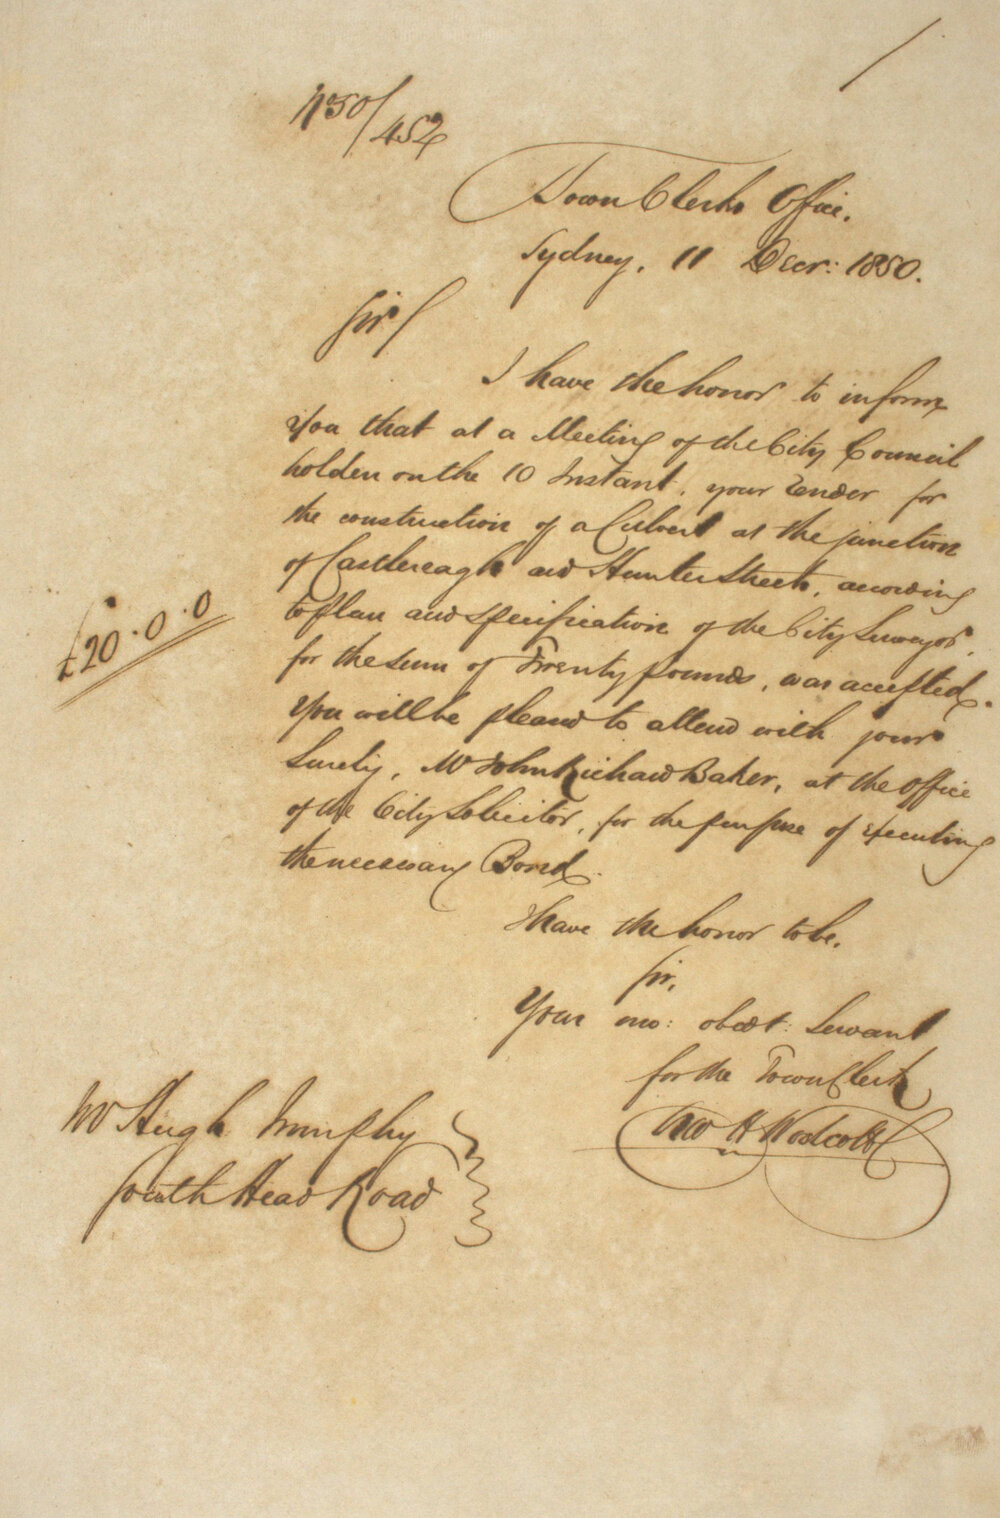 No 50/452
Town Clerks Office.
Sydney, 11 Decr: 1850.
Sir/
I have the honor to inform
You that at a Meeting of the City Council
holden on the 10 Instant, your Tender for
the construction of a Culvert at the junction
of Castlereagh and Hunter Streets, according
to plan and specification of the City Surveyor,
£20.0.0
for the sum of Twenty pounds, was accepted.
You will be pleased to attend with your
Surety, Mr John Richard Baker, at the office
of the City Solicitor, for the purpose of executing
the necessary Bond.
I have the honor to be,
Sir,
Your mo: obedt: Servant
for the Town Clerk
H Woolcott
Mr Hugh Murphy
South Head Road